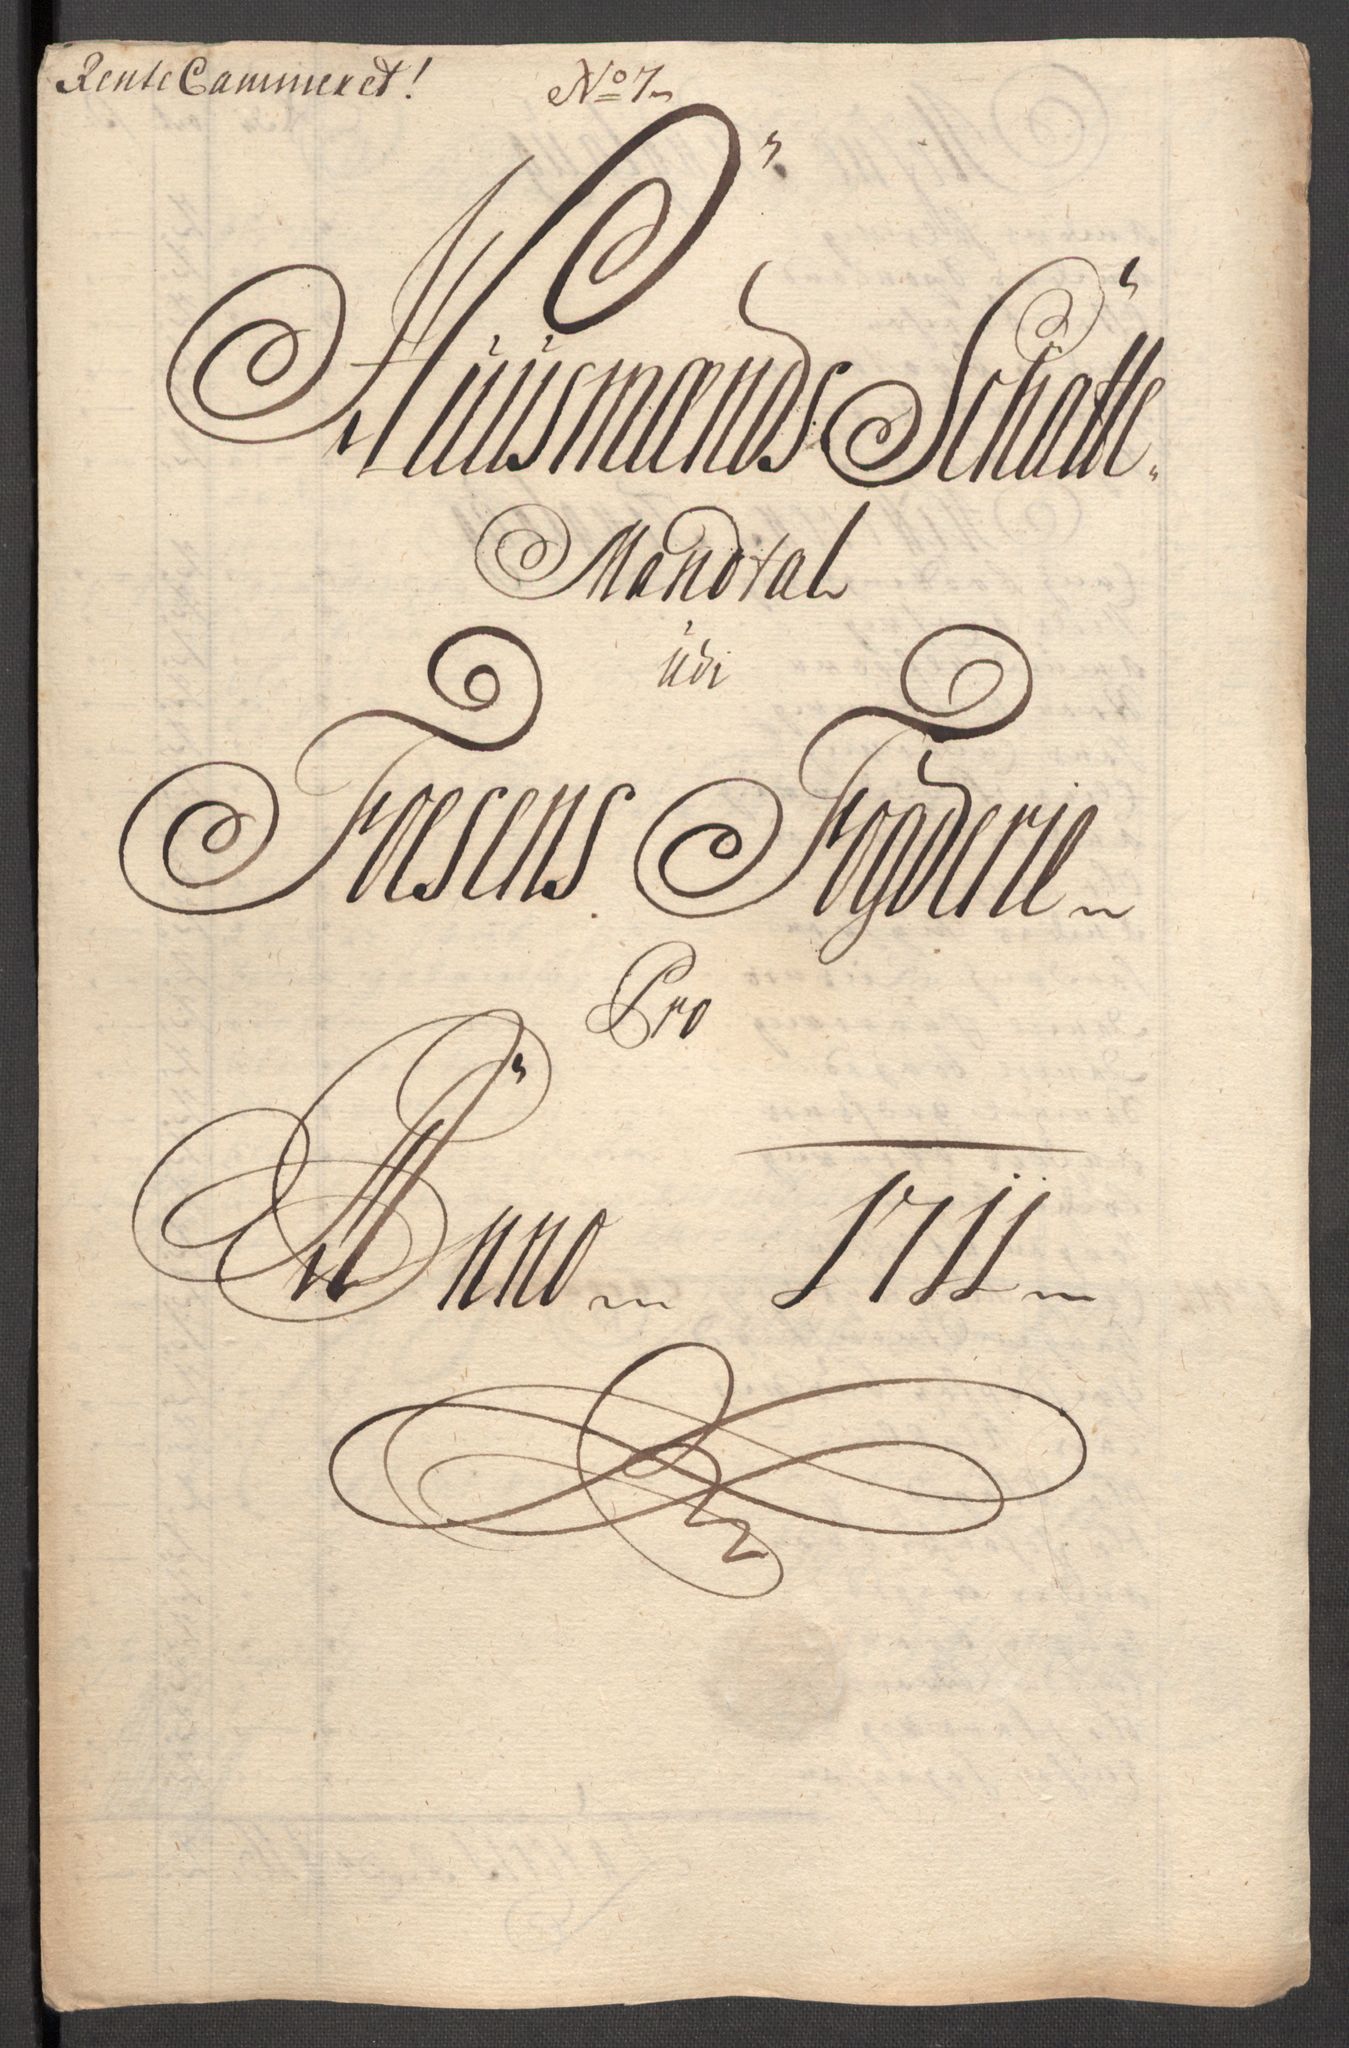 RenteCammeret!
No 7
Huusmænds Schatte
Mandtal
udi
Foesens Fogderie
Pro
Anno 1711